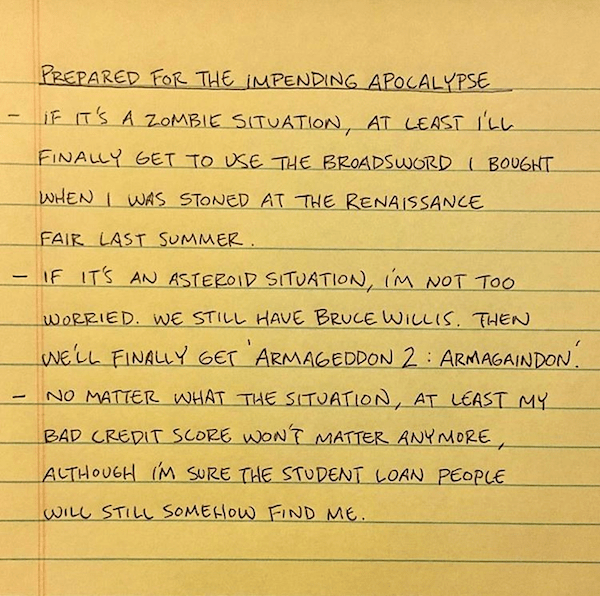 PREPARED FOR THE IMPENDING APOCALYPSE
- IF IT'S A ZOMBIE SITUATION, AT LEAST I'LL
FINALLY GET TO USE THE BROADSWORD I BOUGHT
WHEN I WAS STONED AT THE RENAISSANCE
FAIR LAST SUMMER.
- IF IT'S AN ASTEROID SITUATION, I'M NOT TOO
WORRIED. WE STILL HAVE BRUCE WILLIS. THEN
WE'LL FINALLY GET 'ARMAGEDDON 2: ARMAGAINDON'.
- NO MATTER WHAT THE SITUATION, AT LEAST MY
BAD CREDIT SCORE WON'T MATTER ANYMORE,
ALTHOUGH I'M SURE THE STUDENT LOAN PEOPLE
WILL STILL SOMEHOW FIND ME.